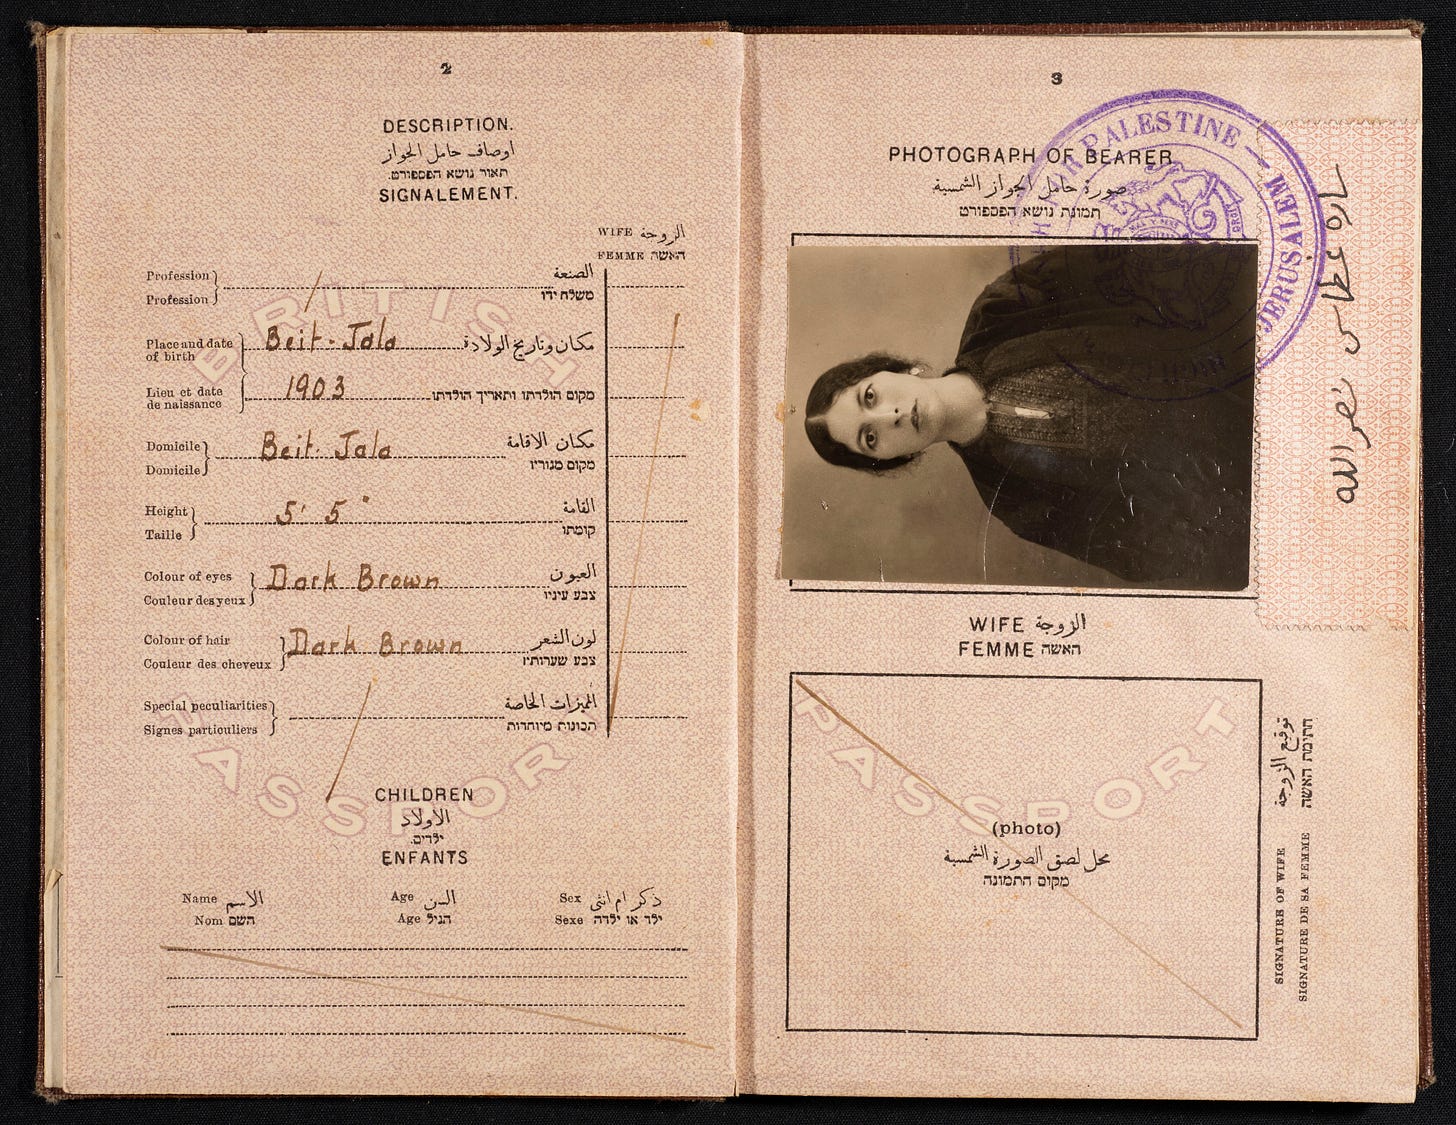 2
DESCRIPTION.
اوصاف حامل الجواز
תאור נושא הפספורט.
SIGNALEMENT.
WIFE الزوجة
FEMME האשה
Profession الصنعة
Profession משלח ידו
BRITISH
Place and date of birth Beit-Jala مكان وتاريخ الولادة
Lieu et date de naissance 1903 מקום הולדתו ותאריך הולדתו
Domicile Beit-Jala مكان الاقامة
Domicile מקום מגוריו
Height 5' 5" القامة
Taille קומתו
Colour of eyes Dark Brown العيون
Couleur des yeux צבע עיניו
Colour of hair Dark Brown لون الشعر
Couleur des cheveux צבע שערותיו
Special peculiarities المميزات الخاصة
Signes particuliers תכונות מיוחדות
PASSPORT
CHILDREN
الأولاد
ילדים.
ENFANTS
Name الاسم Age السن Sex ذكر ام انثى
Nom השם Age הגיל Sexe ילד או ילדה
3
PHOTOGRAPH OF BEARER
صورة حامل الجواز الشمسية
תמונת נושא הפספורט
FOR PALESTINE — JERUSALEM
ساره غطاس نصرالله
WIFE الزوجة
FEMME האשה
PASSPORT
(photo)
محل لصق الصورة الشمسية
מקום התמונה
SIGNATURE OF WIFE توقيع الزوجة
SIGNATURE DE SA FEMME חתימת האשה